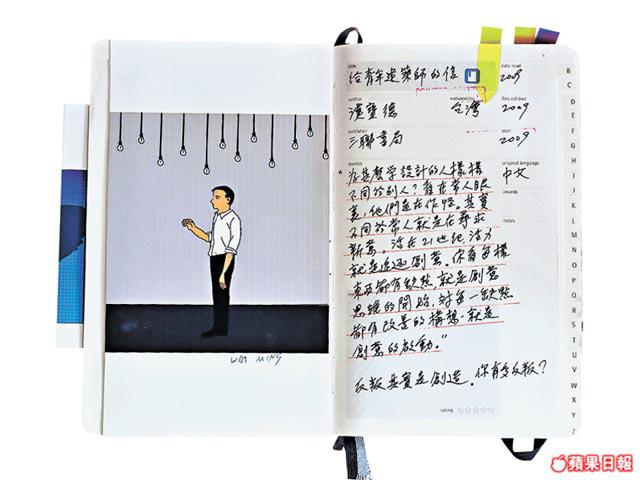 WAI MING
title
date read
給青年建築師的信
2009
author
nationality
first edition
漢寶德
台灣
2009
publisher
year
三聯書局
2009
quotes
original language
中文
awards
notes
為甚麼學設計的人樣樣
不同於別人？在常人眼
裏，他們是在作怪。其實
不同於常人就是在尋求
新意。活在21世紀，活力
就是追逐創意。你看每樣
東西都有缺點，就是創意
思維的開始。對每一缺點
都有改善的構想，就是
創意的啟動。”
反叛其實是創造。你有多反叛？
rating
B
C
D
E
F
G
H
I
J
K
L
M
N
O
P
Q
R
S
T
U
V
W
X
Y
Z
蘋果日報